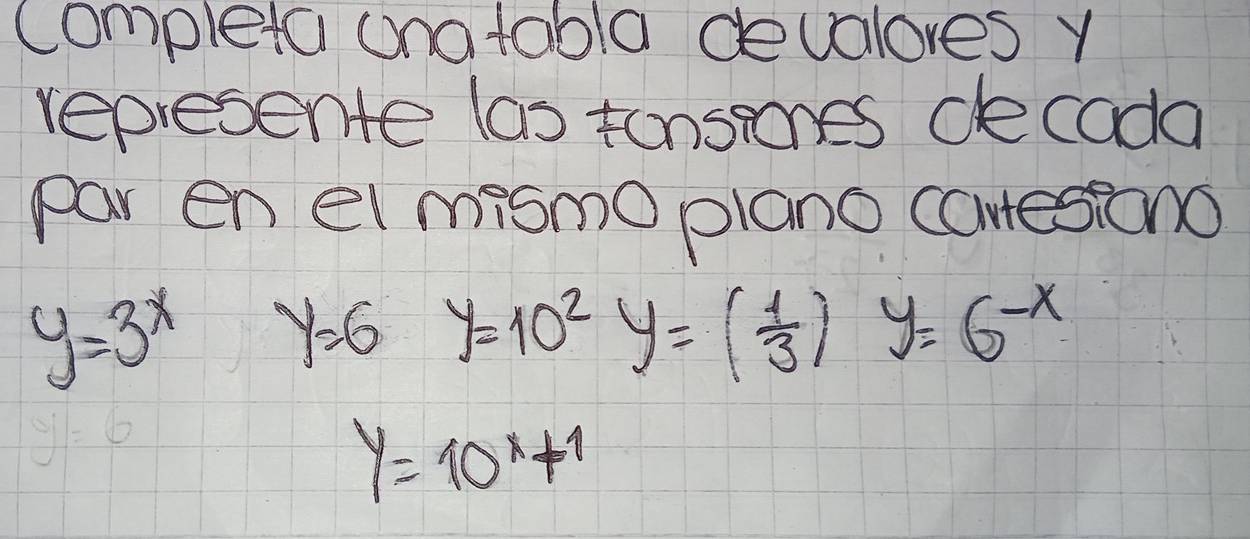 completa una tabla de valores y
represente las fonsiones de cada
par en el mismo plano cartesiano
y=3ˣ y=6 y=10² y=(1/3) y=6⁻ˣ
y=6
y=10ˣ+¹